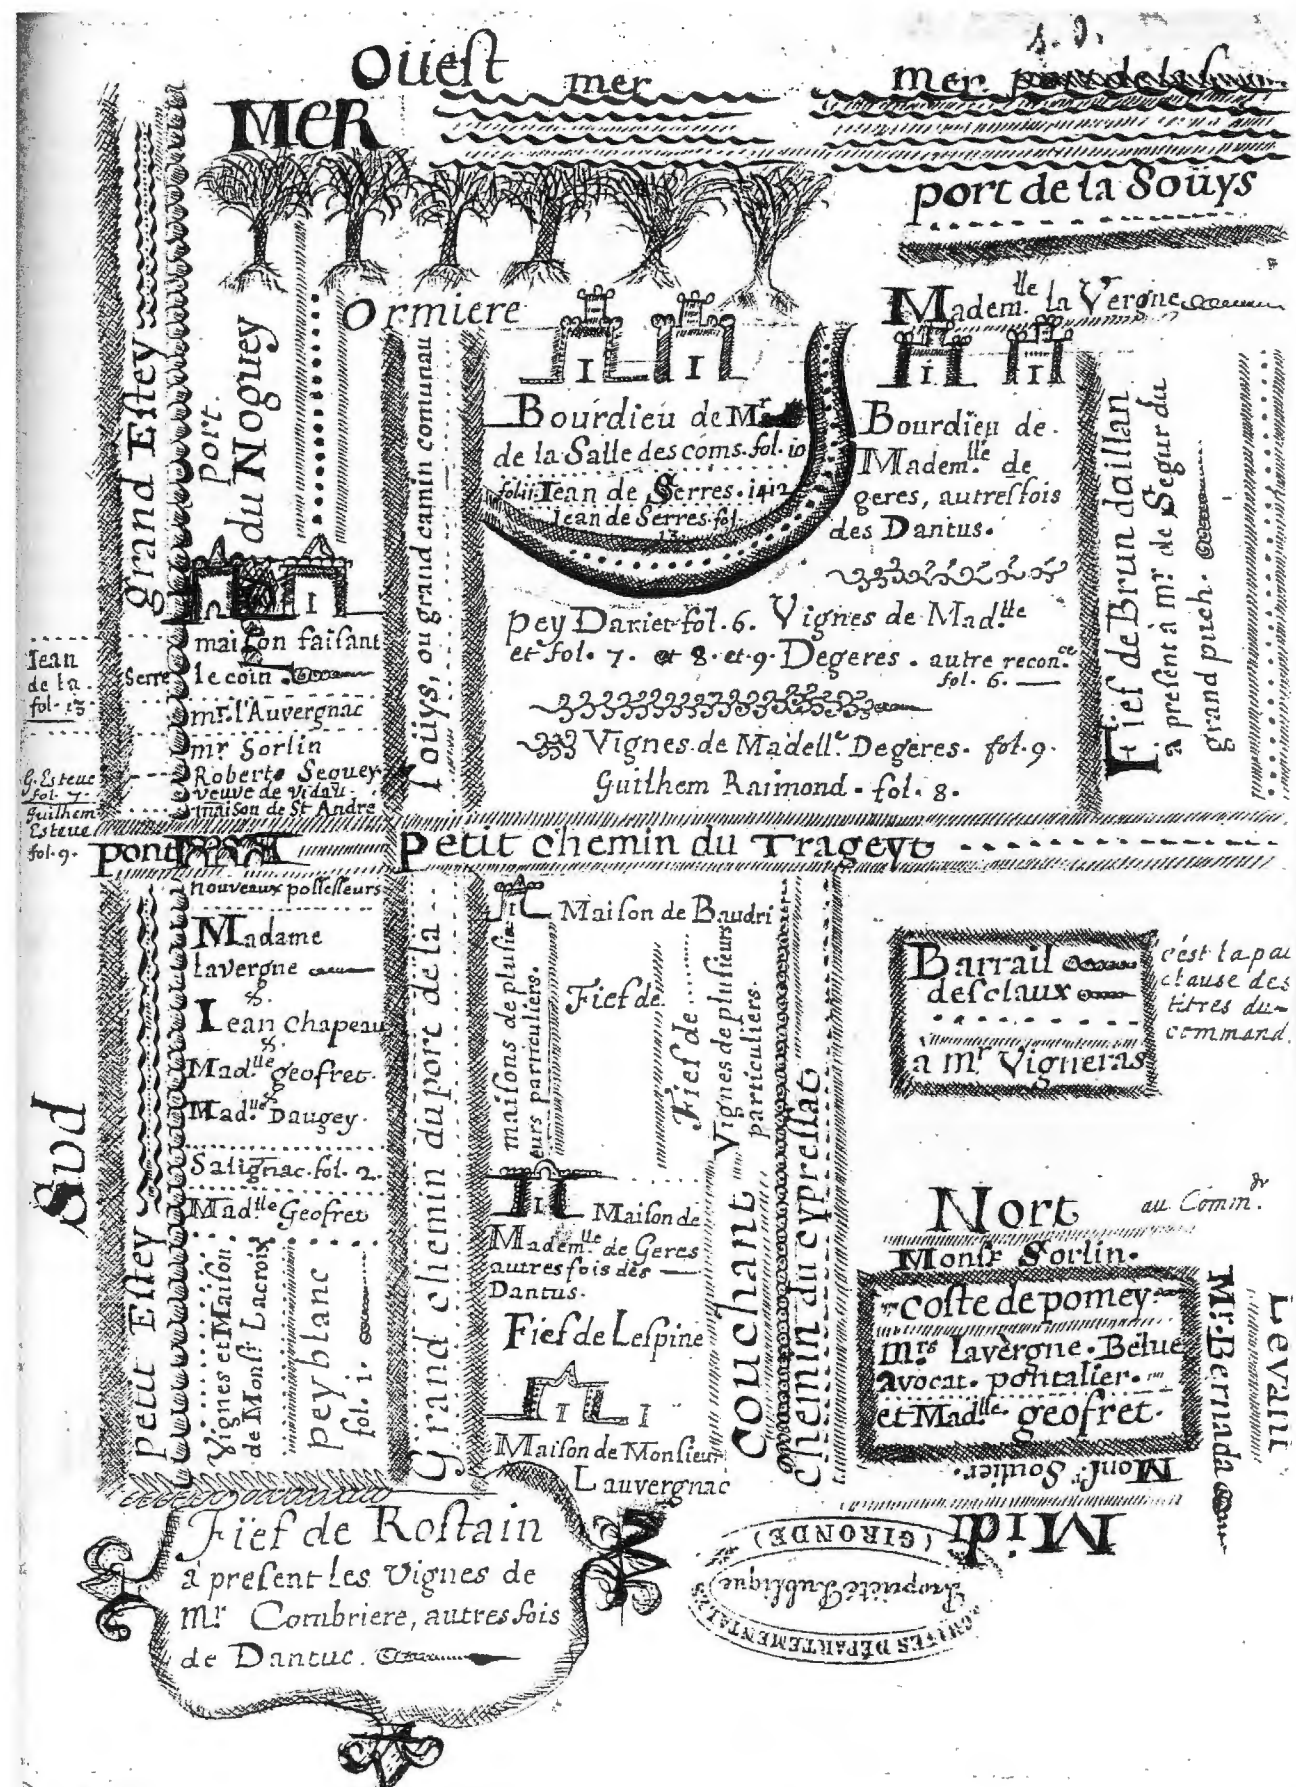 s. d.
Oüest
mer
mer
MER
port de la Soüys
Ormiere
Madem.lle la Vergne
grand Estey
Port.
du Noguey
Souys, ou grand camin comunau
1 1
Bourdieu de Mr
de la Salle des coms. fol. 10
folii. Iean de Serres. 1412
Iean de Serres. fol.
13.
1 1
Bourdieu de
Madem.lle de
geres, autresfois
des Dantus.
Fief de Brun daillan
a present à mr de Segur du
grand puch.
1
maison faisant
le coin.
Iean
de la Serre
fol. 13
mr. l'Auvergnac
mr Sorlin
Roberte Seguey
veuve de Vidau
maison de St Andre
G. Esteve
fol. 7.
Guilhem
Esteve
fol. 9.
pey Darier fol. 6. Vignes de Mad.lle
et fol. 7. et 8. et 9. Degeres. autre recon.ce
fol. 6.
Vignes de Madell.e Degeres. fol. 9.
Guilhem Raimond. fol. 8.
pont
petit chemin du Trageyt
nouveaux possesseurs
Madame
lavergne
&.
Iean Chapeau
&.
Mad.lle geofret.
&
Mad.lle Daugey.
Salignac. fol. 2.
Mad.lle Geofret
petit Estey
Vignes et Maison
de Monsr Lacroix
pey blanc
fol. 1.
Grand chemin du port de la
1
Maison de Baudri
maisons de plusi
eurs particuliers.
Fief de
Fief de
Vignes de plusieurs
particuliers.
1
Maison de
Madem.lle de Geres
autresfois des
Dantus.
Fief de Lespine
1 1
Maison de Monsieur
Lauvergnac
Couchant
chemin du cypressat
Barrail
desclaux
a mr Vigneras
c'est la pa
clause des
titres du
command.
Sud
Nort
au Comm.dr
Monsr Sorlin.
coste de pomey
Mrs Lavergne. Belue
avocat. pontalier.
et Mad.lle geofret.
Mr. Bernada
Levant
Monsr Soulier.
Midi
Fief de Rostain
à present les Vignes de
mr Combriere, autresfois
de Dantuc.
ARCHIVES DÉPARTEMENTALES
Propriété Publique
(GIRONDE)